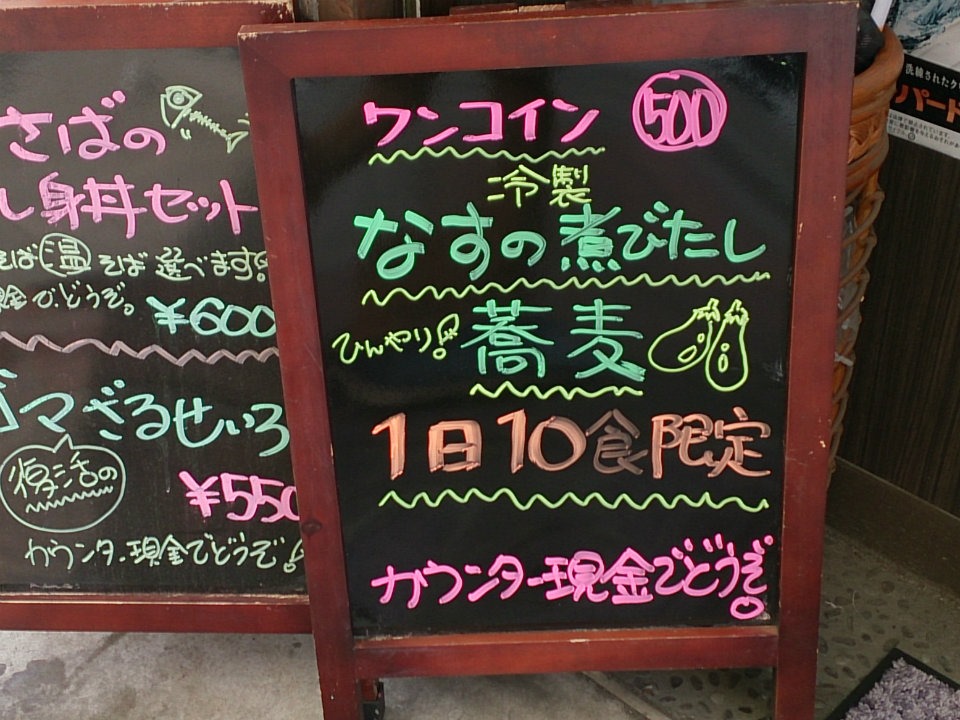 さばの
し身丼セット
そば温そば選べます。
現金でどうぞ。
¥600
ゴマざるせいろ
復活の
¥550
カウンター現金でどうぞ!
ワンコイン 500
冷製
なすの煮びたし
ひんやり! 蕎麦
1日10食限定
カウンター現金でどうぞ!
洗練されたク
パード